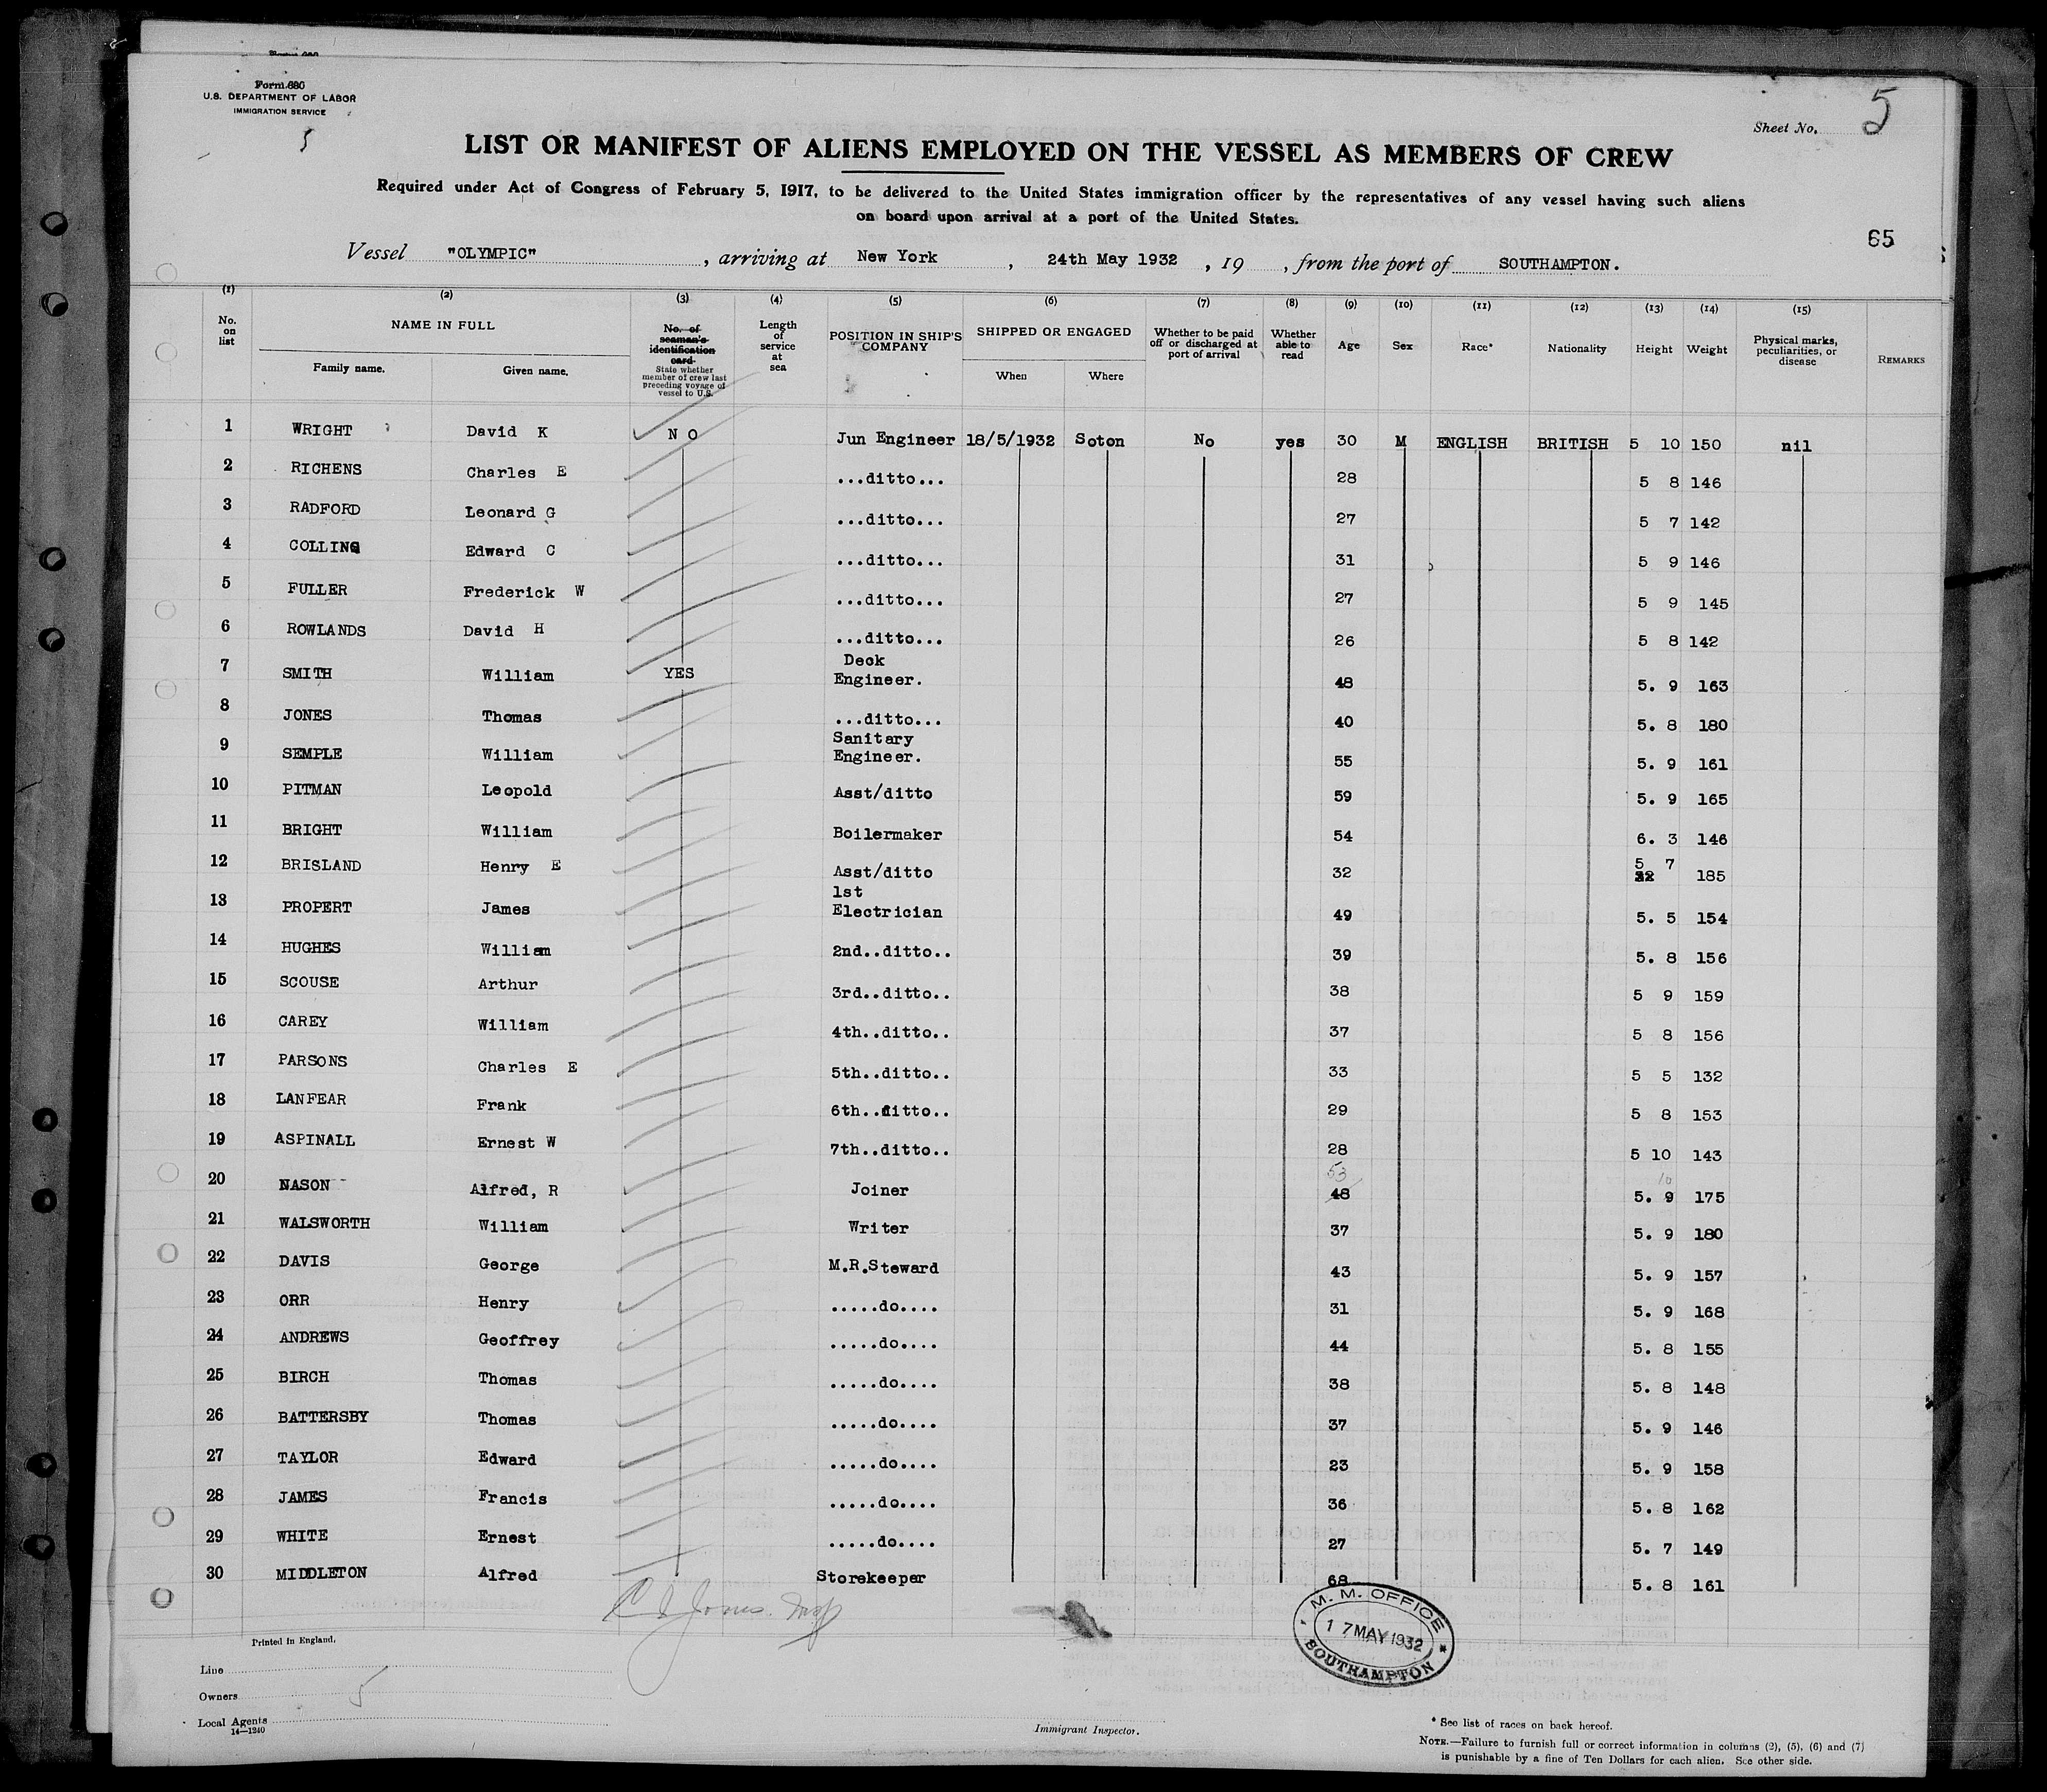 Form 680
U.S. DEPARTMENT OF LABOR
IMMIGRATION SERVICE
5
Sheet No. 5
LIST OR MANIFEST OF ALIENS EMPLOYED ON THE VESSEL AS MEMBERS OF CREW
Required under Act of Congress of February 5, 1917, to be delivered to the United States immigration officer by the representatives of any vessel having such aliens
on board upon arrival at a port of the United States.
65
Vessel "OLYMPIC", arriving at New York, 24th May 1932, 19, from the port of SOUTHAMPTON.
(1) (2) (3) (4) (5) (6) (7) (8) (9) (10) (11) (12) (13) (14) (15)
No. on list NAME IN FULL Family name. Given name. No. of seaman's identification card. State whether member of crew last preceding voyage of vessel to U.S. Length of service at sea POSITION IN SHIP'S COMPANY SHIPPED OR ENGAGED When Where Whether to be paid off or discharged at port of arrival Whether able to read Age Sex Race* Nationality Height Weight Physical marks, peculiarities, or disease REMARKS
1 WRIGHT David K NO Jun Engineer 18/5/1932 Soton No yes 30 M ENGLISH BRITISH 5 10 150 nil
2 RICHENS Charles E ...ditto... 28 5 8 146
3 RADFORD Leonard G ...ditto... 27 5 7 142
4 COLLING Edward C ...ditto... 31 5 9 146
5 FULLER Frederick W ...ditto... 27 5 9 145
6 ROWLANDS David H ...ditto... 26 5 8 142
7 SMITH William YES Deck Engineer. 48 5. 9 163
8 JONES Thomas ...ditto... 40 5. 8 180
9 SEMPLE William Sanitary Engineer. 55 5. 9 161
10 PITMAN Leopold Asst/ditto 59 5. 9 165
11 BRIGHT William Boilermaker 54 6. 3 146
12 BRISLAND Henry E Asst/ditto 32 5 7 185
13 PROPERT James 1st Electrician 49 5. 5 154
14 HUGHES William 2nd..ditto.. 39 5. 8 156
15 SCOUSE Arthur 3rd..ditto.. 38 5 9 159
16 CAREY William 4th..ditto.. 37 5 8 156
17 PARSONS Charles E 5th..ditto.. 33 5 5 132
18 LANFEAR Frank 6th..ditto.. 29 5 8 153
19 ASPINALL Ernest W 7th..ditto.. 28 5 10 143
20 NASON Alfred, R Joiner 53 48 5. 9 10 175
21 WALSWORTH William Writer 37 5. 9 180
22 DAVIS George M.R.Steward 43 5. 9 157
23 ORR Henry .....do.... 31 5. 9 168
24 ANDREWS Geoffrey .....do.... 44 5. 8 155
25 BIRCH Thomas .....do.... 38 5. 8 148
26 BATTERSBY Thomas .....do.... 37 5. 9 146
27 TAYLOR Edward .....do.... 23 5. 9 158
28 JAMES Francis .....do.... 36 5. 8 162
29 WHITE Ernest .....do.... 27 5. 7 149
30 MIDDLETON Alfred Storekeeper 68 5. 8 161
M. M. OFFICE
17 MAY 1932
SOUTHAMPTON
Printed in England.
Line
Owners 5
Local Agents
14—1240
Immigrant Inspector.
* See list of races on back hereof.
NOTE.—Failure to furnish full or correct information in columns (2), (5), (6) and (7)
is punishable by a fine of Ten Dollars for each alien. See other side.